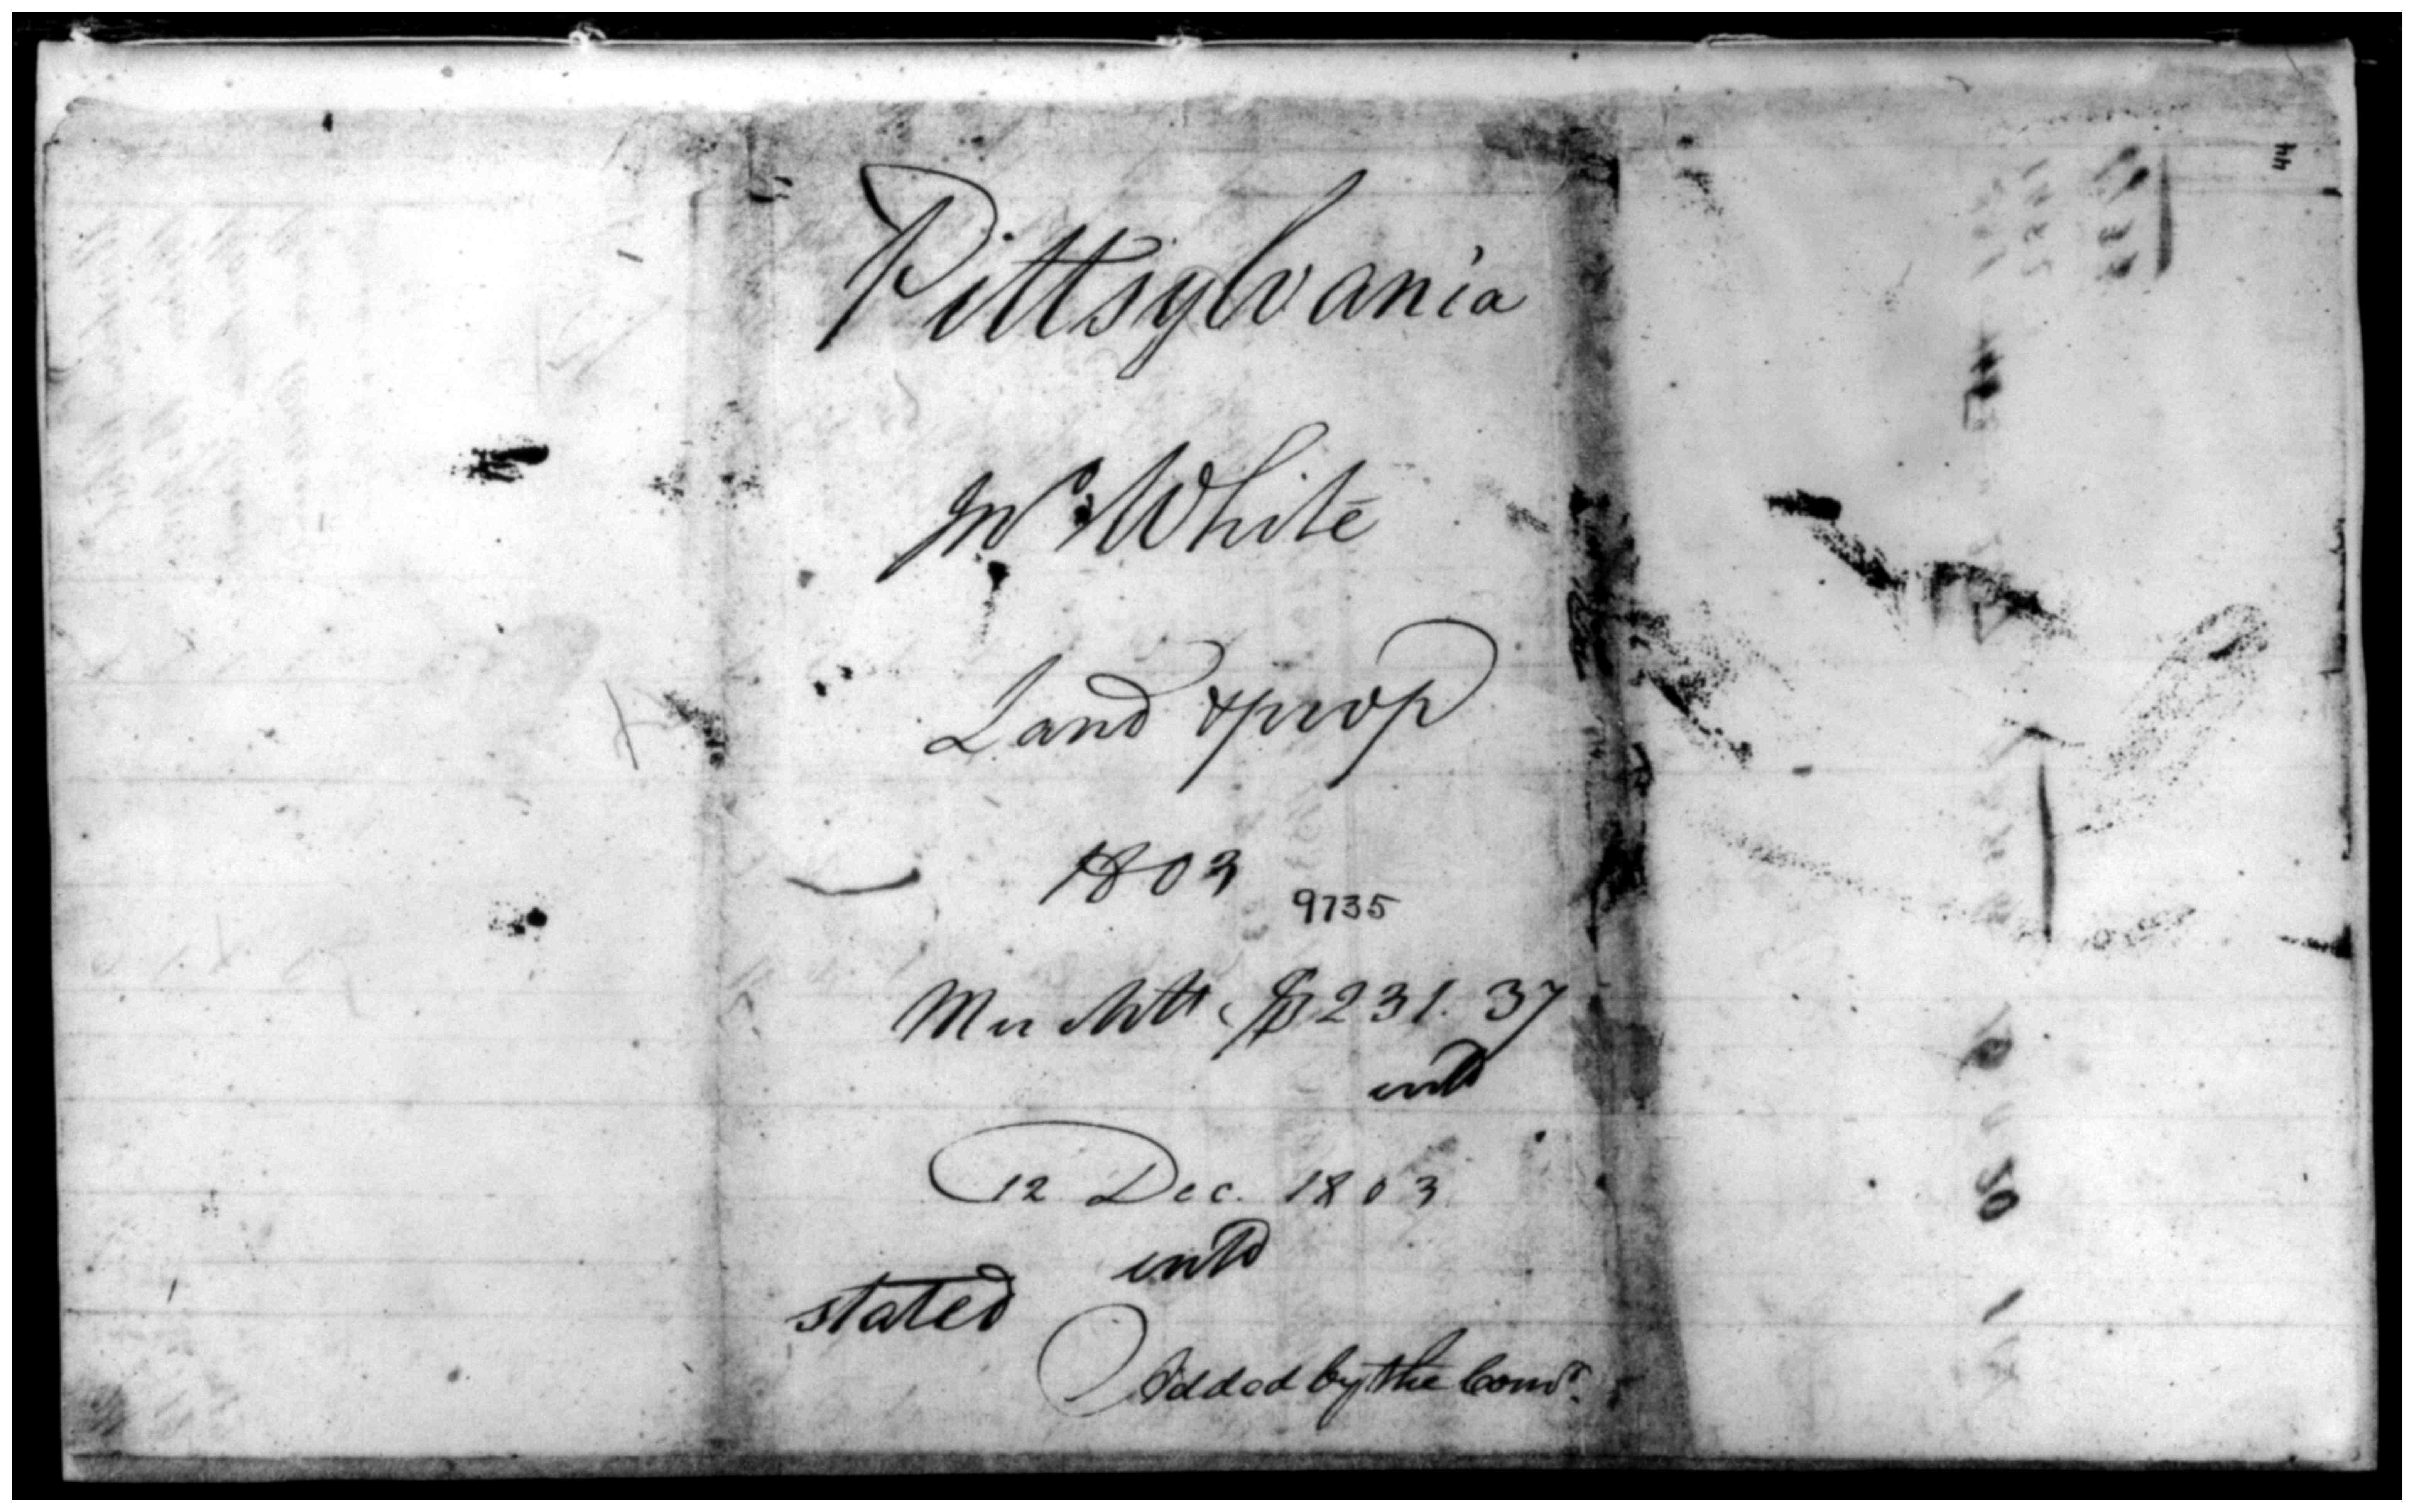 Pittsylvania
Mr. White
Land & prop
1803
9735
$231.37
entd
12 Dec. 1803
entd
stated
Added by the Comr.
44